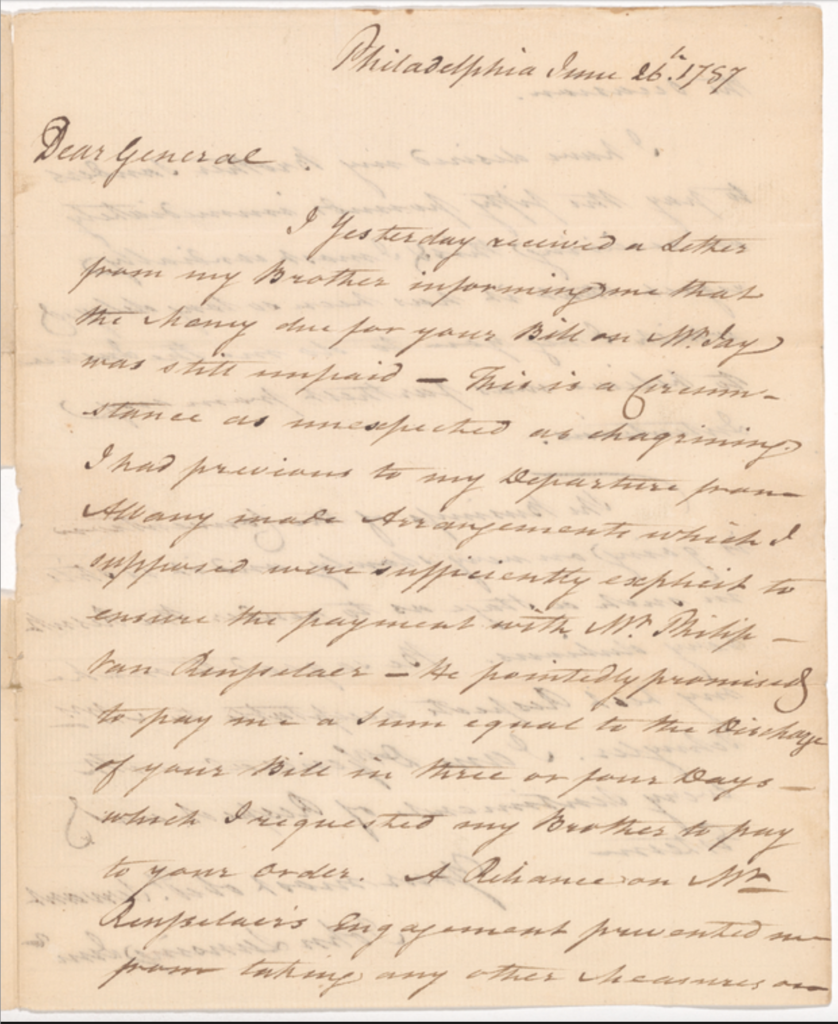 Philadelphia June 26th. 1787
Dear General
I Yesterday received a Letter
from my Brother informing me that
the Money due for your Bill on Mr. Jay
was still unpaid — This is a Circum-
stance as unexpected as chagrining
I had previous to my Departure from
Albany made Arrangements which I
supposed were sufficiently explicit to
ensure the payment with Mr. Philip
Van Rensselaer — He pointedly promised
to pay me a Sum equal to the Discharge
of your Bill in three or four Days —
which I requested my Brother to pay
to your Order. A Reliance on Mr.
Rensselaer's Engagement prevented me
from taking any other Measures on